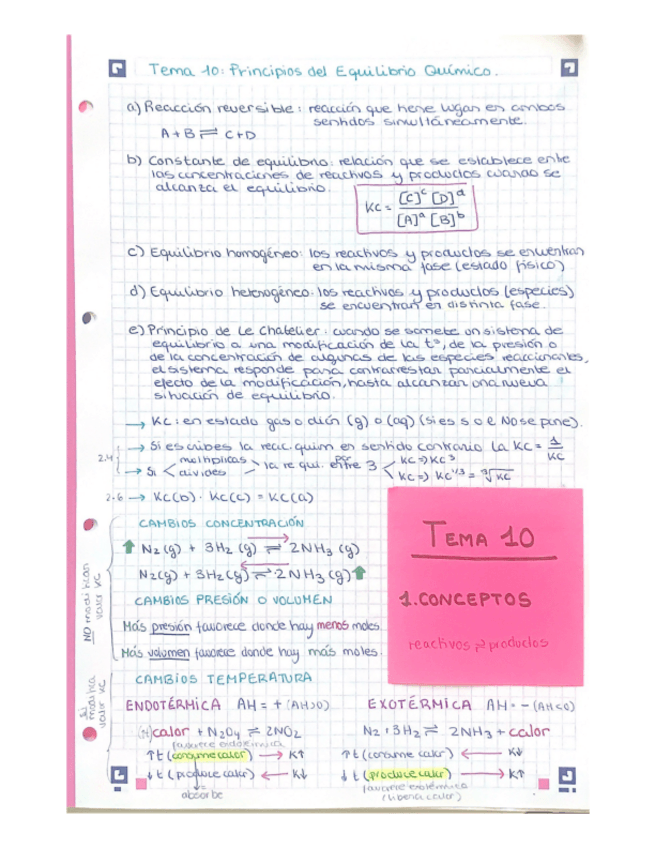 Tema 10: Principios del Equilibrio Químico.
a) Reacción reversible: reacción que tiene lugar en ambos
sentidos simultáneamente.
A + B ⇌ C + D
b) Constante de equilibrio: relación que se establece ente
las concentraciones de reactivos y productos cuando se
alcanza el equilibrio.
Kc = [C]^c [D]^d / [A]^a [B]^b
c) Equilibrio homogéneo: los reactivos y productos se encuentran
en la misma fase (estado físico)
d) Equilibrio heterogéneo: los reactivos y productos (especies)
se encuentran en distinta fase.
e) Principio de Le Chatelier: cuando se somete un sistema de
equilibrio a una modificación de la tª, de la presión o
de la concentración de algunas de las especies reaccionantes,
el sistema responde para contrarrestar parcialmente el
efecto de la modificación, hasta alcanzar una nueva
situación de equilibrio.
→ Kc: en estado gas o disón (g) o (aq) (si es s o l No se pone).
2.4 → Si escribes la reac. quim en sentido contrario la Kc = 1/Kc
→ Si < multiplicas / divides > la re qui. por entre 3 < Kc => Kc^3 / Kc => Kc^1/3 = ³√Kc
2.6 → Kc(b) · Kc(c) = Kc(a)
CAMBIOS CONCENTRACIÓN
↑ N2(g) + 3H2 (g) ⇌ 2NH3 (g)
N2(g) + 3H2(g) ⇌ 2NH3 (g) ↑
NO modifican
valor Kc
CAMBIOS PRESIÓN O VOLUMEN
Más presión favorece donde hay menos moles.
Más volumen favorece donde hay más moles.
TEMA 10
1. CONCEPTOS
reactivos ⇌ productos
CAMBIOS TEMPERATURA
Sí
modifica
valor Kc
ENDOTÉRMICA AH = + (AH>0)
calor + N2O4 ⇌ 2NO2
favorece endotérmica
↑t (consume calor) → K↑
↓t (produce calor) ← K↓
absorbe
EXOTÉRMICA AH = - (AH<0)
N2 + 3H2 ⇌ 2NH3 + calor
↑t (consume calor) ← K↓
↓t (produce calor) → K↑
favorece exotérmica
(libera calor)